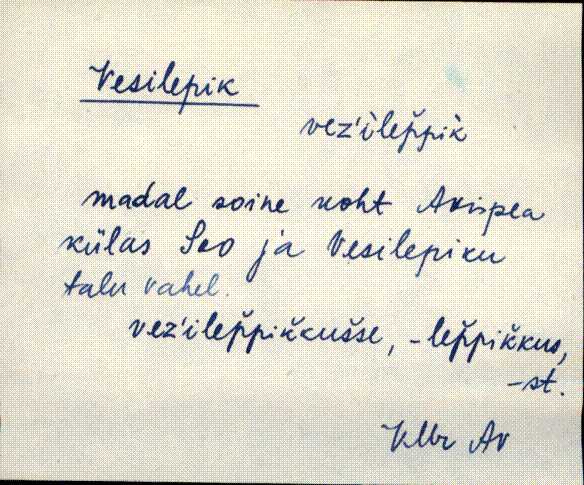 Vesilepik
vez'ìlep̆pik̀
madal soine koht Avispea
külas Soo ja Vesilepiku
talu vahel.
vez'ilep̆pik̆kus̆se, -lep̆pik̆kus,
-st.
VMr Av